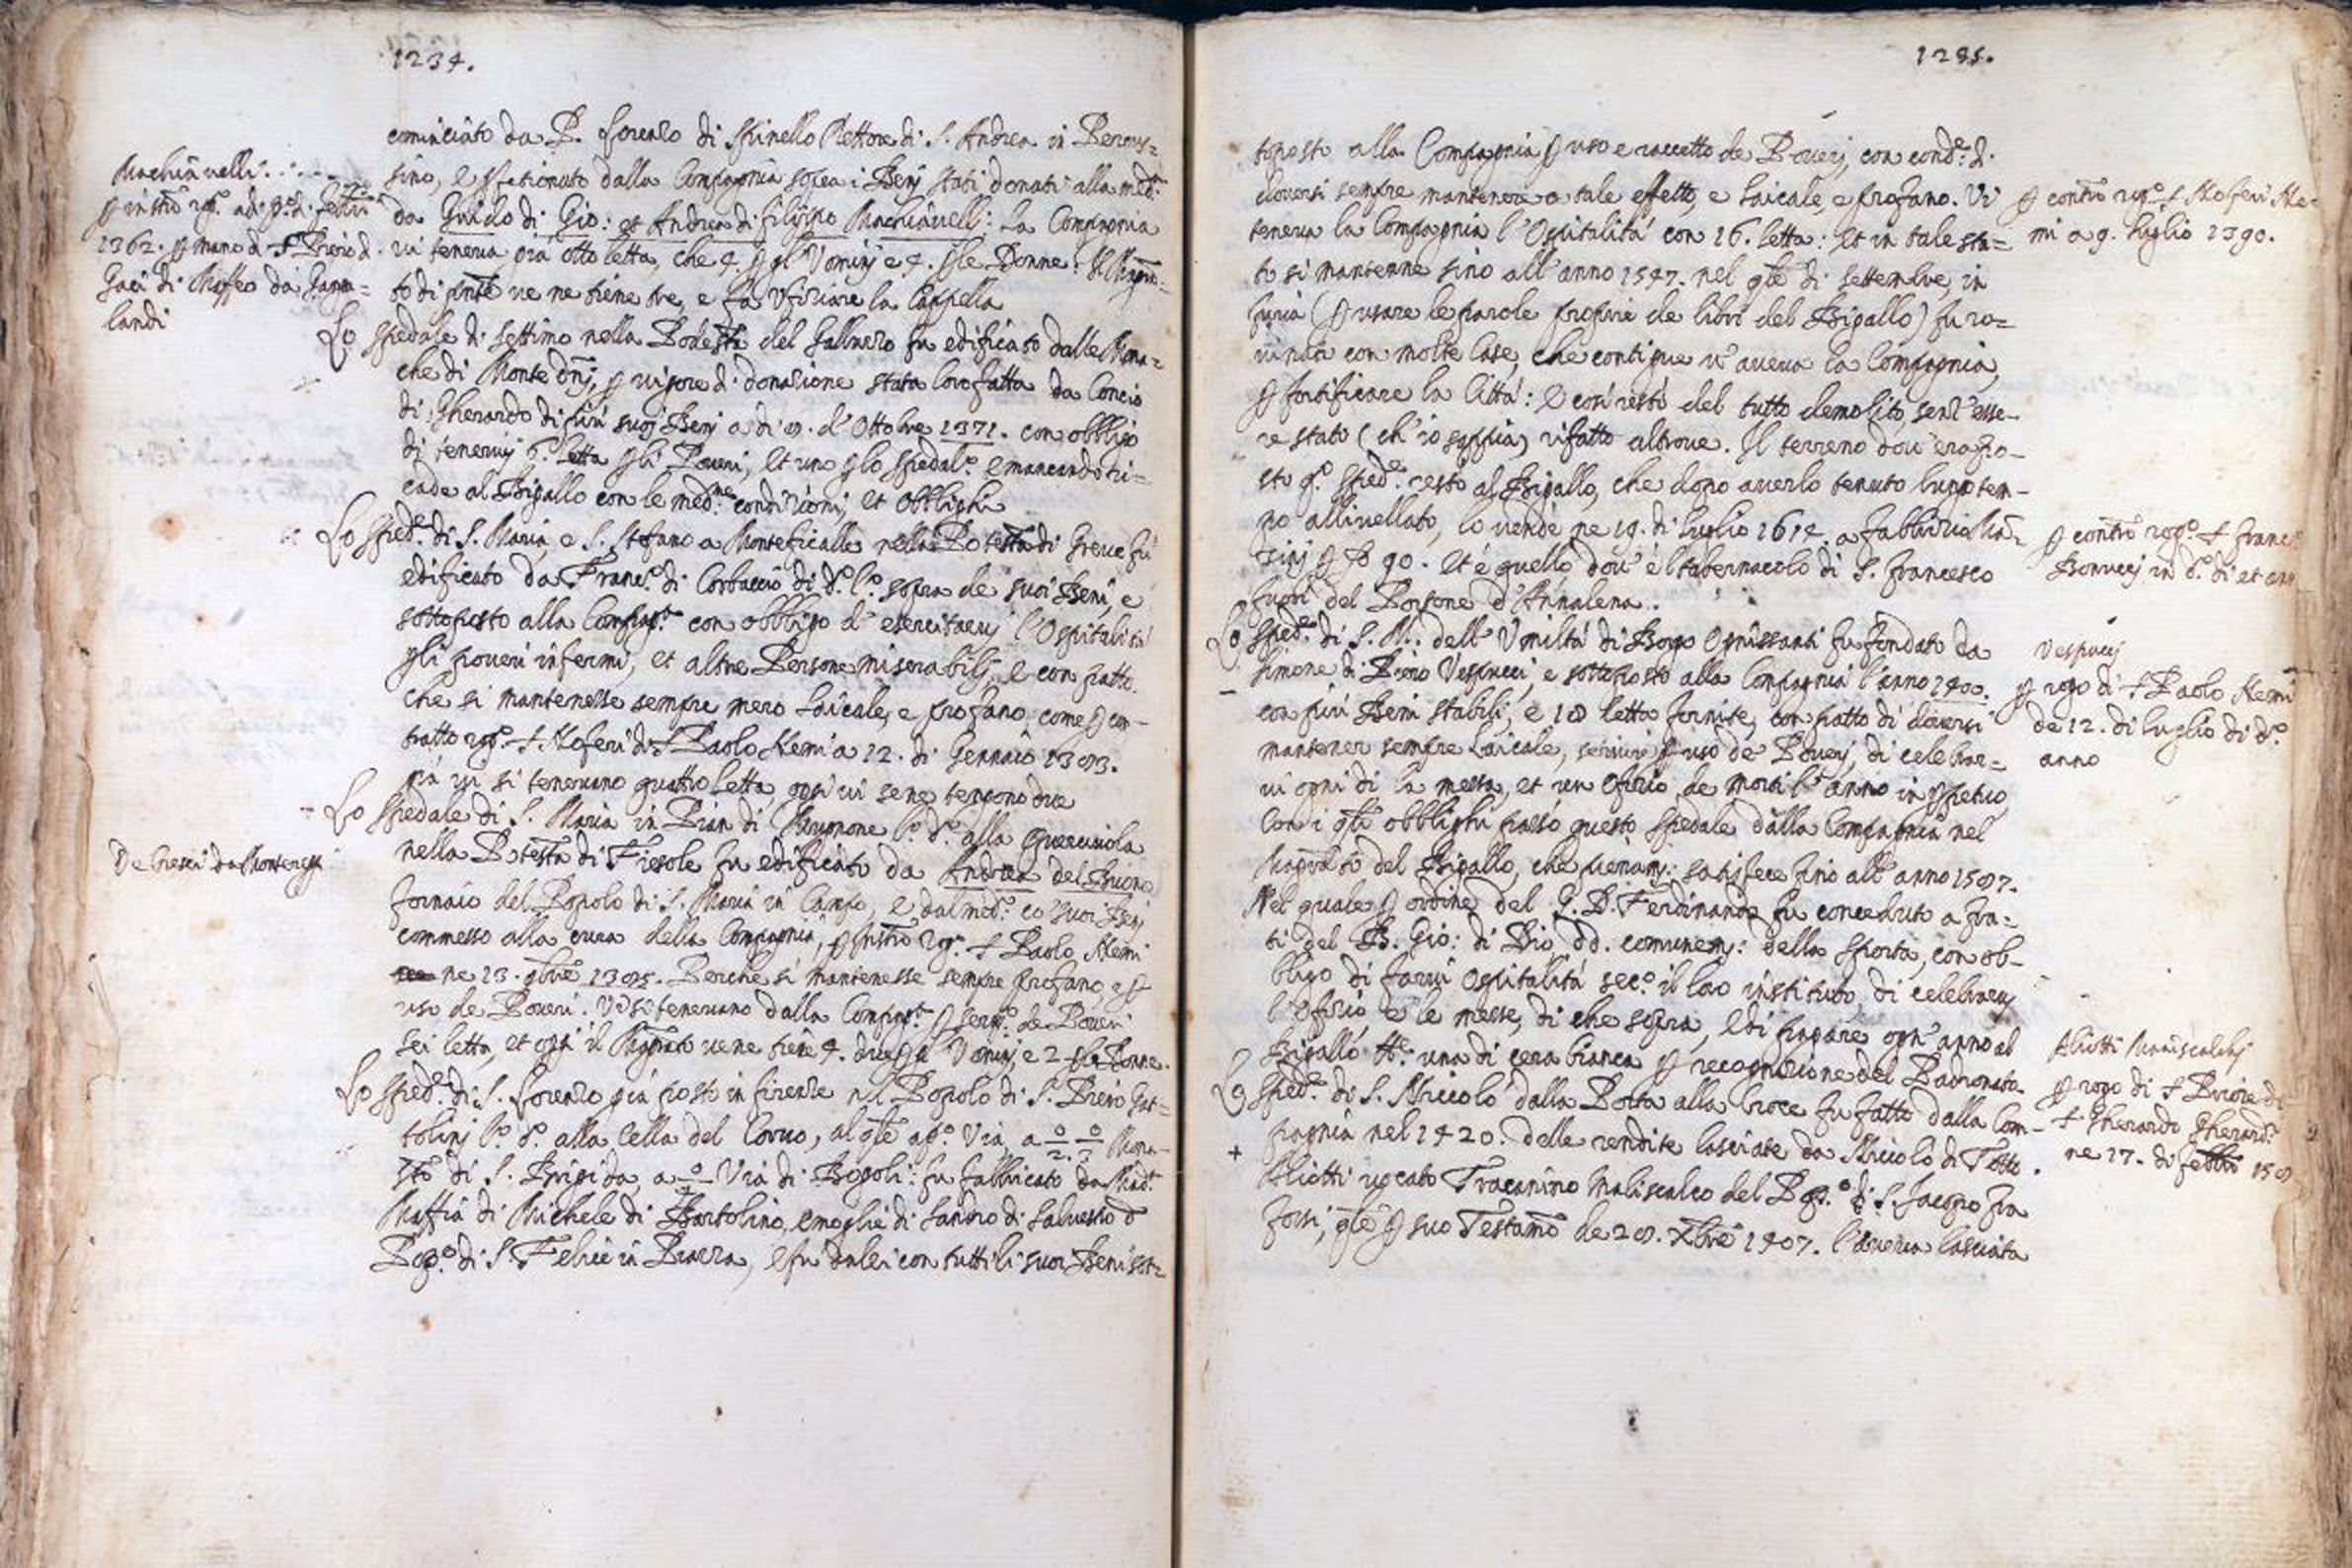 1234.
cominciato da P. Lorenzo di Spinello Rettore di S. Andrea in Percus=
sino, e perfetionato dalla Compagnia sopra i Benj stati donati alla med.ª
da Guido di Gio: et Andrea di Filippo Machiavelli: La Compagnia
vi teneva già otto letta, che 4. p gl'Vominj e 4. p le Donne: Il Magra=
to di pnte ve ne tiene tre, e fa Vfiziare la Cappella
Machiavelli.
p instro rog.º ad p.º d. Febbr.
1362. p mano d. S Piero d.
Gaci di Maffeo da Ganga=
landi
Lo Spedale di Settimo nella Podestà del Galluzzo fu edificato dalle Mona=
che di Monte Dnj, p vigore d. donazione stata loro fatta da Concio
di Gherardo di più suoj Benj a dì 8. d'Ottobre 1371. con obbligo
di tenervj 6. letta p li Poueri, et uno p lo Spedal.º e mancando ri=
cade al Bigallo con le med.me condizionj, et obblighi
Lo Sped.e di S. Maria, e S. Stefano a Monteficalle nella Potestà di Greue fu
edificato da Franc.º di Corbaccio di d.º l.º sopra de suoi Beni, e
sottoposto alla Compag.ª con obbligo d'esercitaruj l'Ospitalità
p li poueri infermi, et altre Persone miserabilj, e con patto
che si mantenesse sempre mero Laicale, e profano, come p con-
tratto rog.º S Noferi di S Paolo Nemi a 12. di Gennaio 1383.
già vi si teneuano quattro letta oggi vi se ne tengono due
Lo Spedale di S. Maria in Pian di Mugnone l.º d.º alla Querciuola
nella Potestà di Fiesole fu edificato da Andrea del Buono
Fornaio del Popolo di S. Maria in Campo, e dal med.º co' suoi Benj
commesso alla cura della Compagnia, p instro rog.º S Paolo Nemi
ne 13. gbre 1385. Perche si mantenesse sempre profano, e p
uso de Poueri. Vi si teneuano dalla Compag.ª p seru.º de Poueri
sei letta, et oggi il Magrato ue ne tiene 4. due p gl'Vominj, e 2 p le Donne.
De Cresci da Montereggi
Lo Sped.e di S. Lorenzo già posto in Firenze nel Popolo di S. Piero Gat=
tolinj l.º d.º alla Cella del Coruo, al qle a p.º Via, a 2. 3 Mona-
sto di S. Brigida, a Via di Bogoli: fu fabbricato da Mad.ª
Maffia di Michele di Bartolino, e moglie di Sandro di Saluestro d
Pop.º di S. Felice in Piazza, e fu da lei con tutti li suoi Beni sot=
1235.
toposto alla Compagnia p uso e raccetto de Poueri, con cond.e d.
douersi sempre mantenere a tale effetto, e Laicale, e profano. Vi
teneua la Compagnia l'Ospitalità con 16. letta: et in tale sta=
to si mantenne sino all'anno 1547. nel qle di Settembre, in
furia (p usare le parole proprie de libri del Bigallo) fu ro=
uinato con molte Case, che contigue u'aueua la Compagnia,
p fortificare la Città: e così restò del tutto demolito, senz'esse-
re stato (ch'io sappia) rifatto altroue. Il terreno dou'era po-
sto q.º Sped.e restò al Bigallo, che dopo auerlo tenuto lungo tem-
po alliuellato, lo vendè ne 19. di Luglio 1614. a Fabbrizio
p 90. et è quello dou'è il tabernacolo di S. Francesco
fuori del Portone d'Annalena.
p contro rog.º S Noferi Ne-
mi a 9. Luglio 1390.
p contro rog.º S Franc.º
Bonuccj in d.º dì et ann
Lo Sped.e di S. M. dell'Vmiltà di Borgo Ognissanti fu fondato da
Simone di Piero Vespucci, e sottoposto alla Compagnia l'anno 1400.
con più Beni stabili, e 18 letta fornite, con patto di douersi
mantener sempre Laicale, seruire p uso de Poueri, di celebrar=
ui ogni dì la messa, et un Ofizio de morti l'anno in ppetuo
Con i qli obblighi passò questo Spedale dalla Compagnia nel
Magrato del Bigallo, che pienam: satisfece sino all'anno 1587.
Nel quale p ordine del G. D. Ferdinando fu conceduto a Fra=
ti del B. Gio: di Dio, dd. comunem: della Sporta, con ob-
bligo di farui Ospitalità sec.º il loro instituto, di celebraruj
l'Ofizio e le messe, di che sopra, e di pagare ogn'anno al
Bigallo una di cera bianca p recognizione del Padronato.
Vespuccj
p rogo di S Paolo Nemi
de 12. di Luglio di d.º
anno
Lo Sped.e di S. Niccolò dalla Porta alla Croce fu fatto dalla Com-
pagnia nel 1420. delle rendite lasciate da Niccolò di Totto
Aliotti uocato Tracanino Maliscalco del Pop.º di S. Iacopo fra
fossi, qle p suo Testamo de 28. Xbre 1407. l'aueua lasciata
Aliotti Maniscalchj
p rogo di S Piero di
S Gherardo Gherard.
ne 17. di Febbro